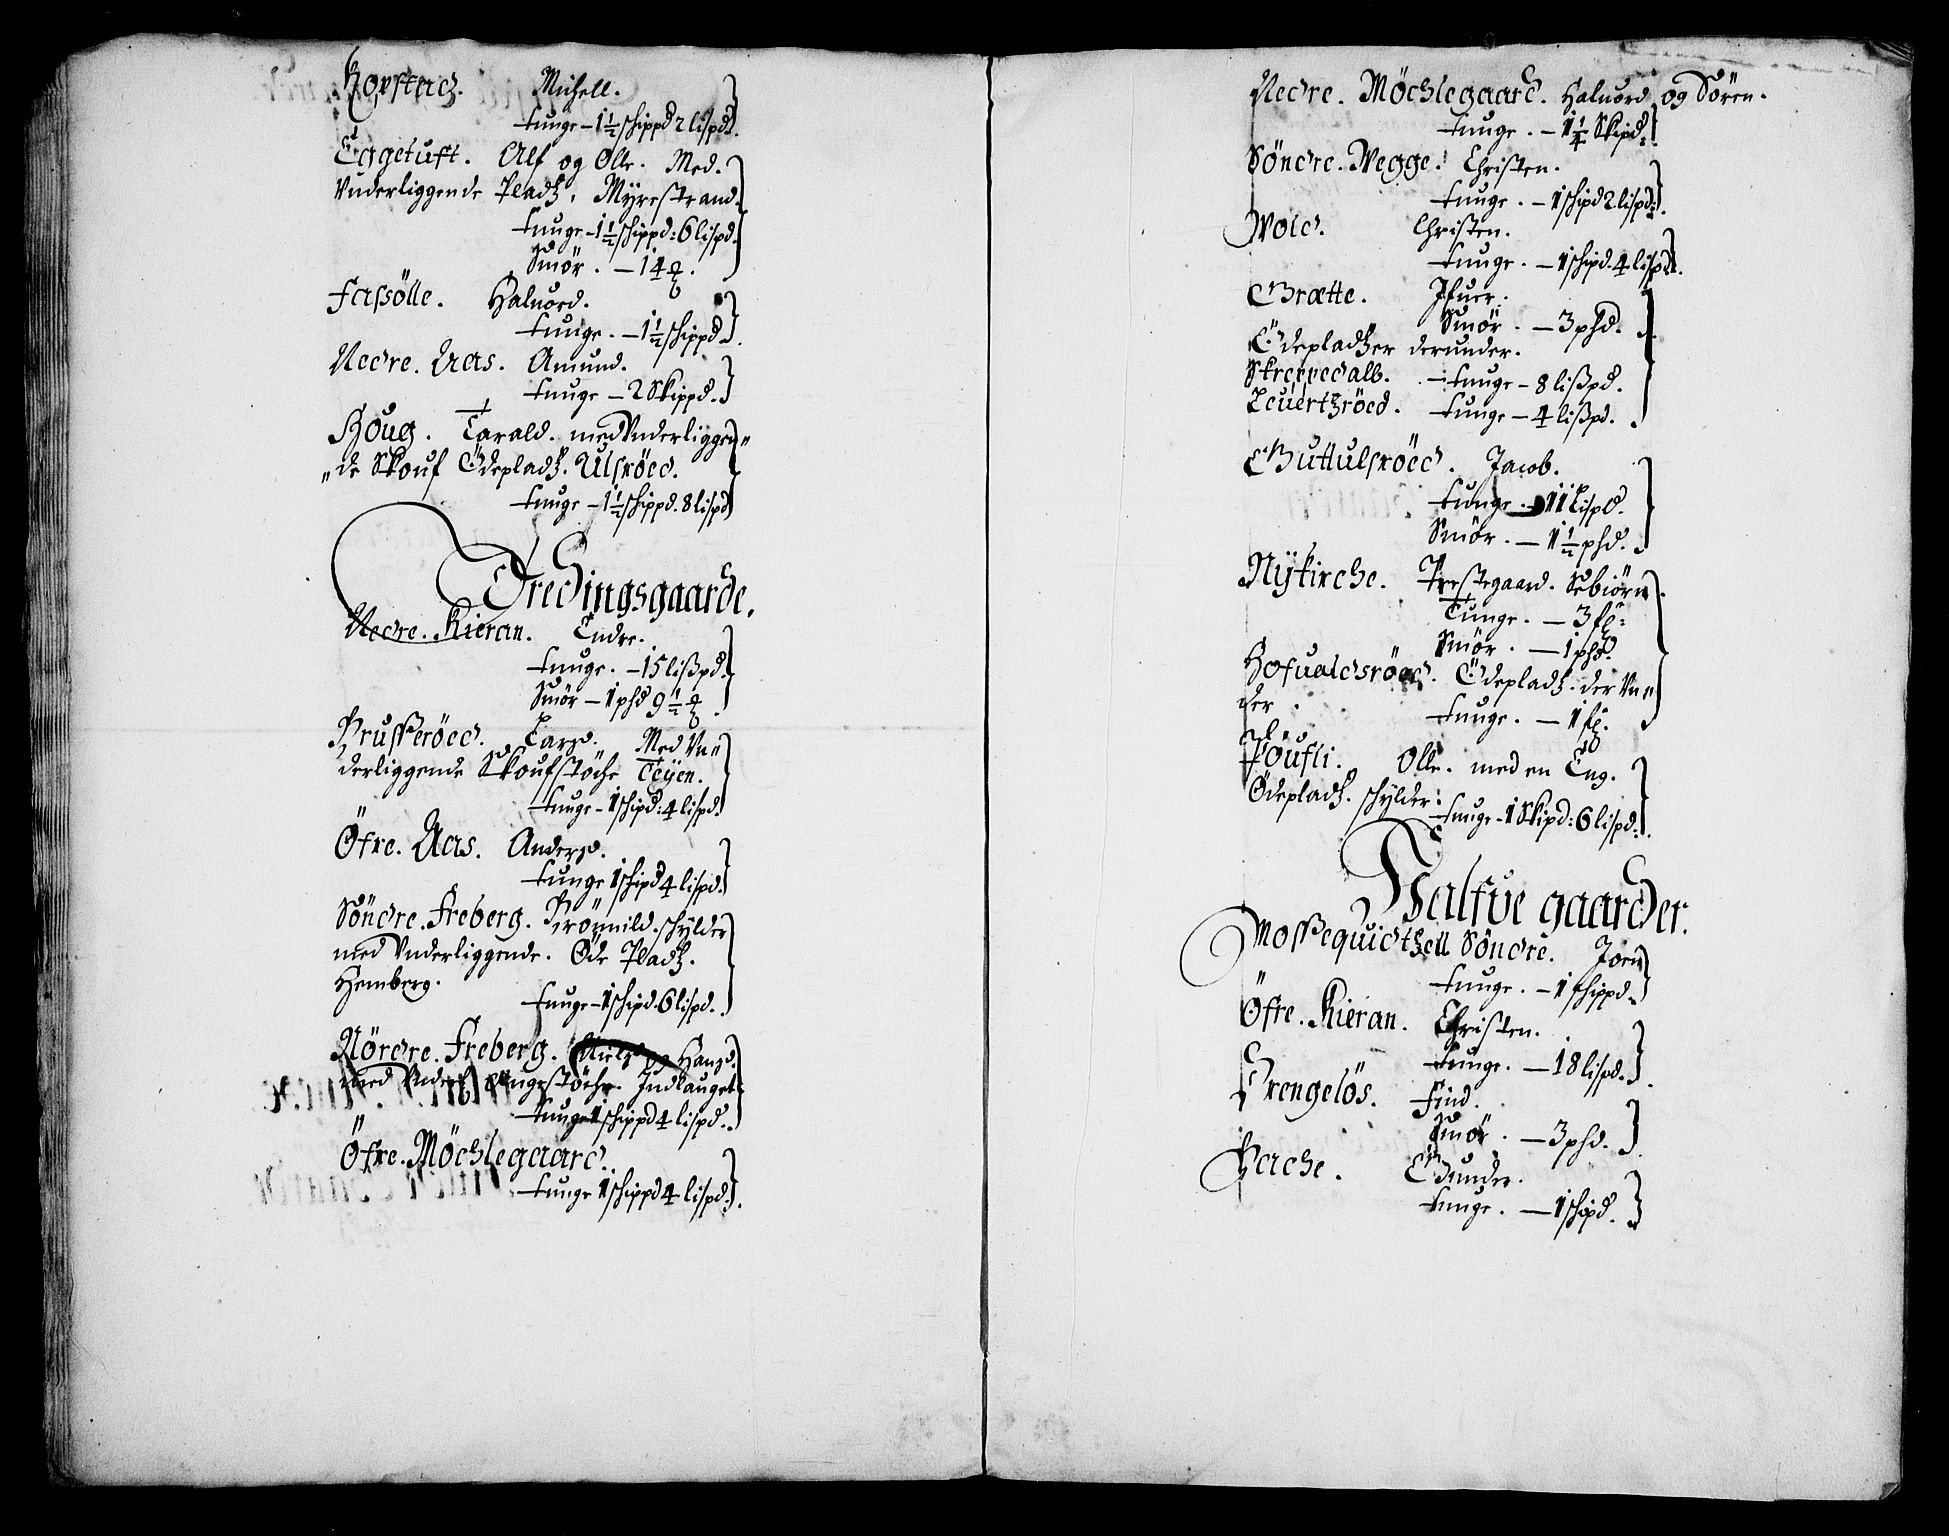 Kopstad. Michell.
tunge - 1½ schippd 2 lispd.
Eggetuft. Alf og Olle. Med.
Vnderliggende Pladtz, Myrestrand.
tunge - 1½ schippd: 6 lispd.
Smör. - 14 ℔.
Fassölle. Haluord.
tunge. - 1½ schippd.
Nedre. Aas. Amund.
tunge - 2 Skippd.
Houg. Tarald. med Vnderliggen„
„de Skouf Ödepladtz. Ulsröed.
tunge - 1½ schippd. 8 lispd
Tredingsgaarde.
Nedre. Kieran. Endre.
tunge. - 15 lißpd.
Smör - 1 phd 9½ ℔.
Prusseröed. Larsz. Med Vn„
derliggende Skoufstöche Teyen.
tunge - 1 schipd: 4 lispd.
Öfre. Aas. Andersz.
tunge 1 schipd 4 lispd.
Söndre. Freberg. Brönnild. schylder
med Vnderliggende. Öde Pladtz.
Hemberg.
tunge - 1 schipd. 6 lispd.
Nördre. Freberg. Nielsz og Hansz.
med Vnderl engestöche. Indlauget
tunge 1 schippd 4 lispd.
Öfre. Möchlegaard.
tunge 1 schippd 4 lispd.
Nedre. Möchlegaard. Haluord og Sören.
tunge. - 1¼ Skipd.
Söndre. Wegge. Christen.
tunge. - 1 schipd 2 lispd.
Wold. Christen.
tunge. - 1 schipd. 4 lispd.
Grætte. Ifuer.
Smör. - 3 phd.
Ödepladtzer derunder.
Skreppedalb. - tunge - 8 lißpd.
Leuertzröed. tunge - 4 lißpd.
Guttulsröed. Jacob.
tunge - 11 Lispd.
Smör. - 1½ phd.
Nykirche. Prestegaard. Sebiörn.
Tunge. - 3 f℔:
Smör. - 1 phd.
Hofualdsröed. Ödepladtz. der Vn„
der.
tunge. - 1 f℔.
Pöufli. Olle. med en Eng.
Ödepladtz. schylder:
tunge - 1 Skipd: 6 lispd:
Halfue gaarder.
Mossequidtzell Söndre. Joen
tunge. - 1 schippd.
Öfre. Kieran. Christen.
tunge. - 18 lispd.
Trengelös. Find.
Smör. - 3 phd.
Hache. Gunder.
tunge. - 1 schipd.